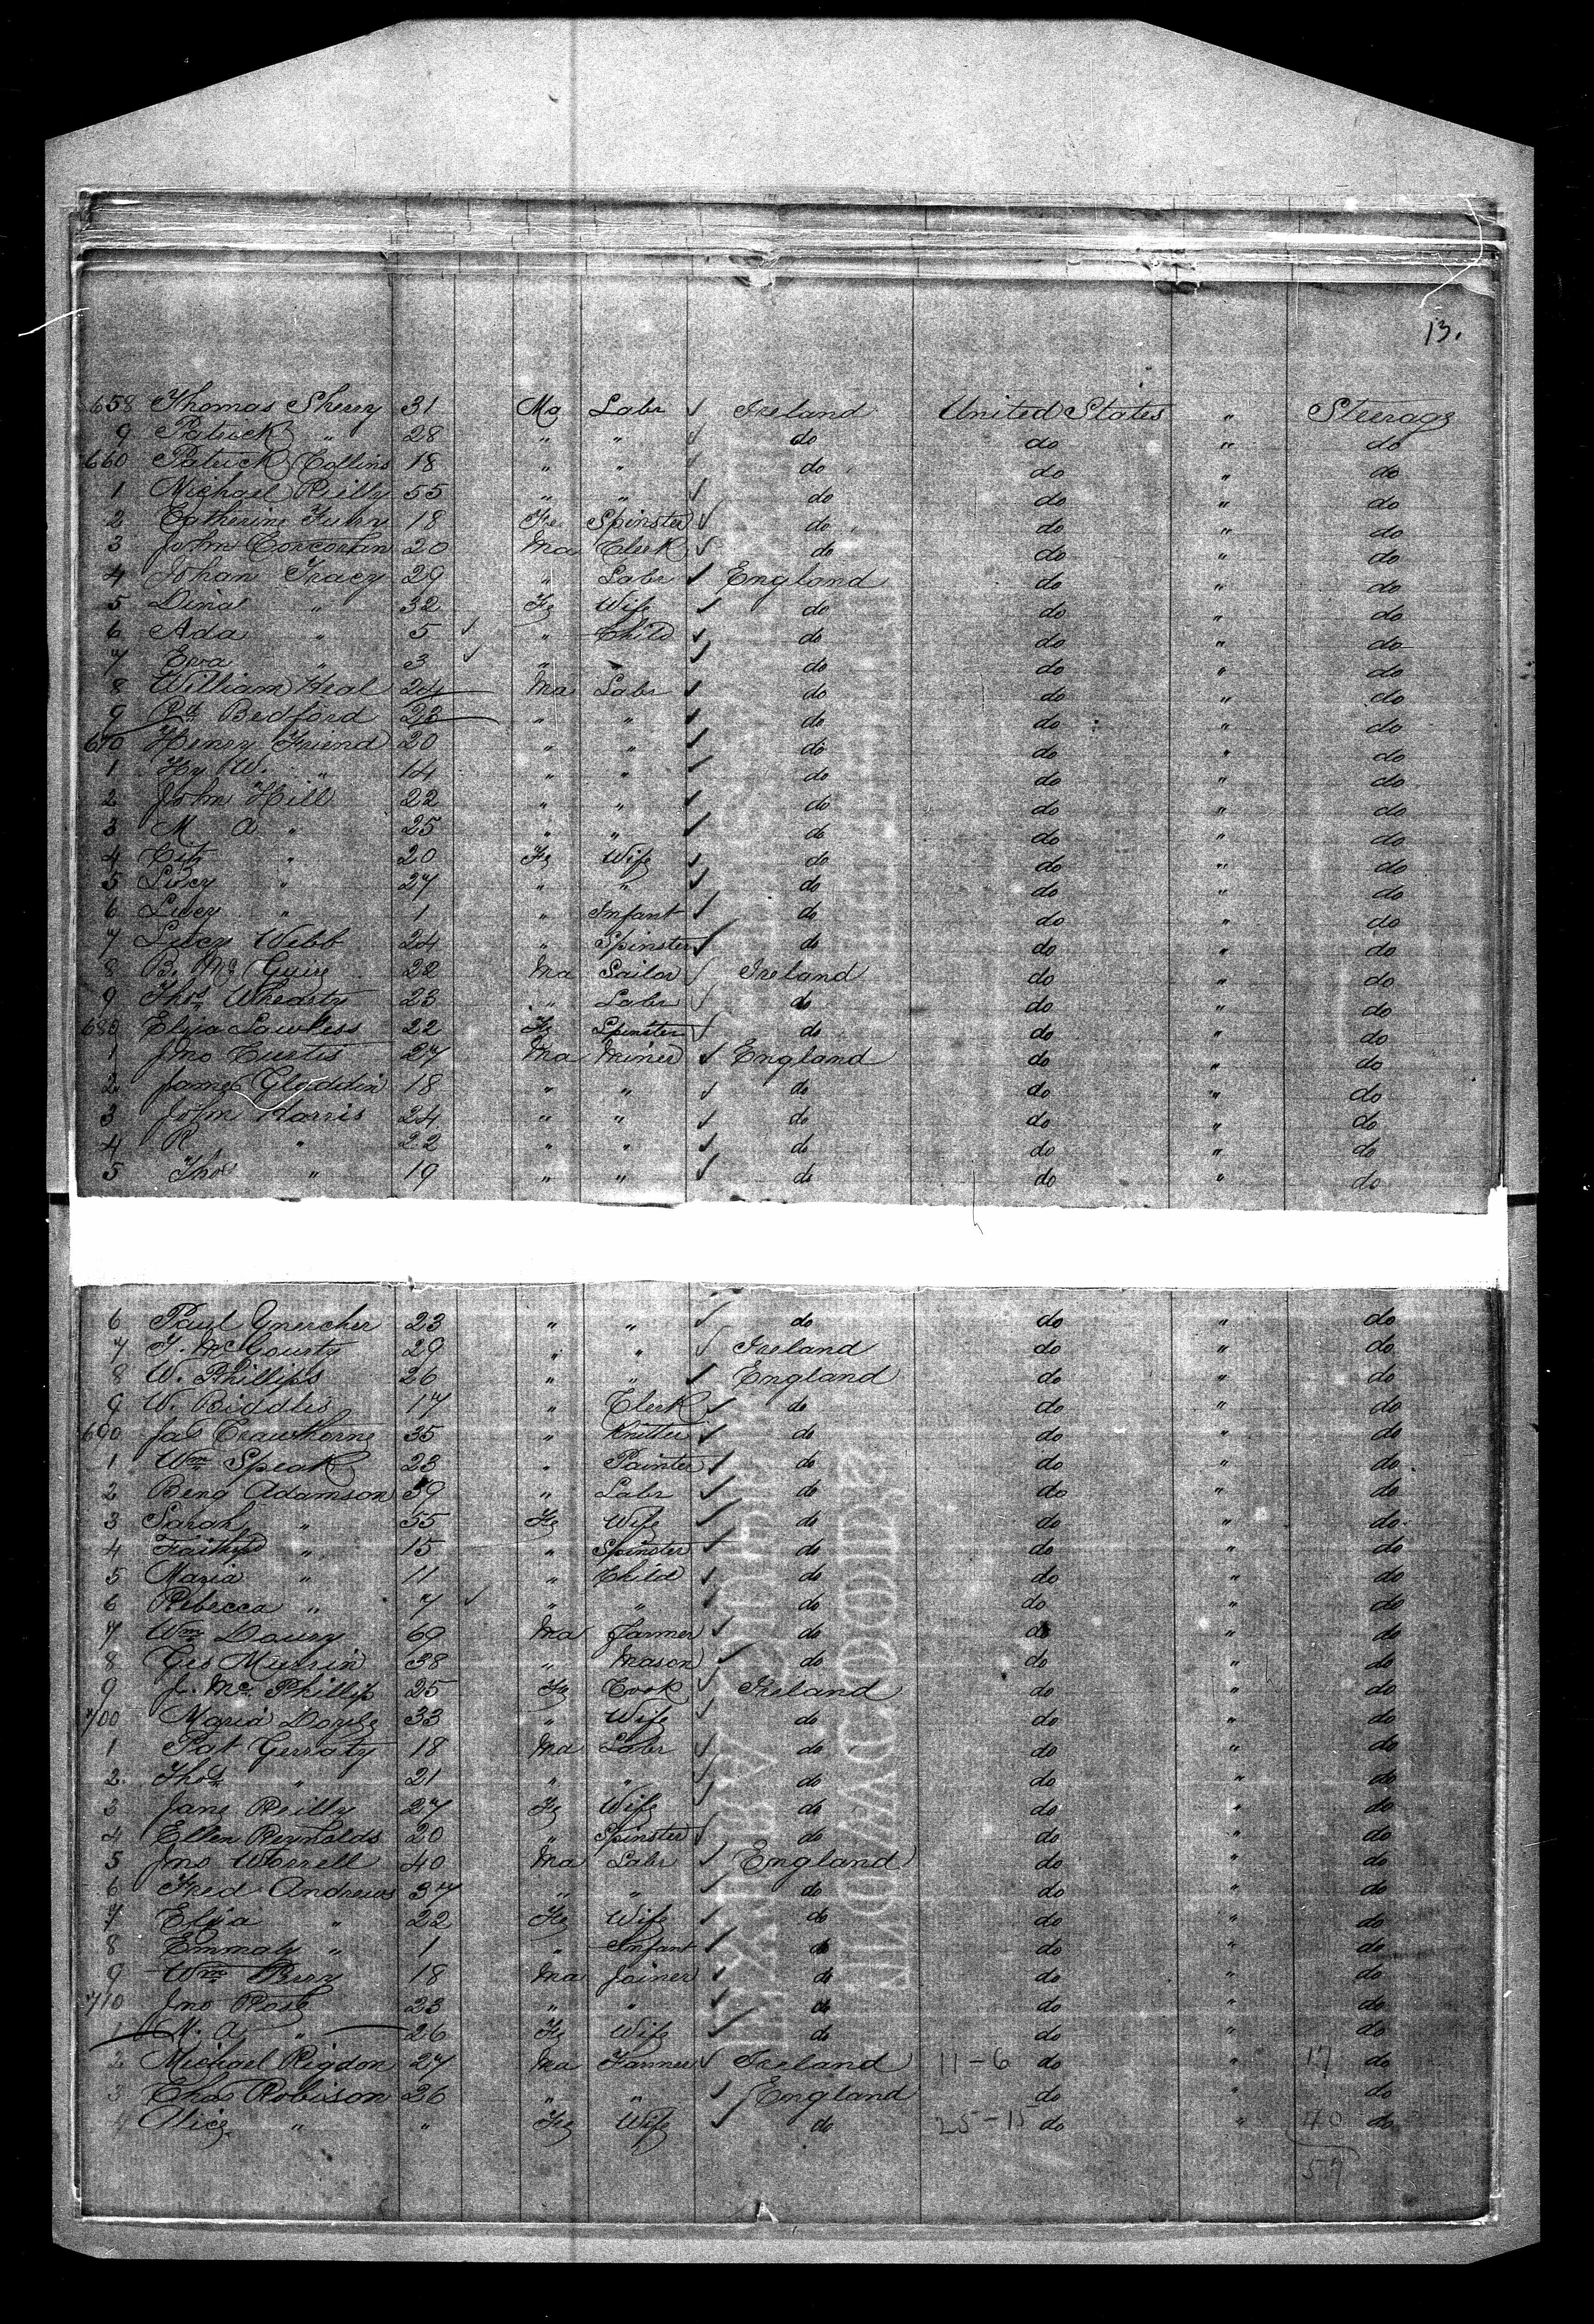 13.
658 Thomas Sherry 31 Ma Labr ✓ Ireland United States " Steerage
9 Patrick " 28 " " ✓ do do " do
660 Patrick Collins 18 " " ✓ do do " do
1 Michael Reilly 55 " " ✓ do do " do
2 Catherine 18 Fe Spinster ✓ do do " do
3 John Corcoran 20 Ma Clerk ✓ do do " do
4 Johan Tracy 29 " Labr ✓ England do " do
5 Dina " 32 Fe Wife ✓ do do " do
6 Ada " 5 ✓ " Child ✓ do do " do
7 Eva " 3 ✓ " " ✓ do do " do
8 William Heal 24 Ma Labr ✓ do do " do
9 Rd Bedford 23 " " ✓ do do " do
670 Henry Friend 20 " " ✓ do do " do
1 Hy W. " 14 " " ✓ do do " do
2 John Hill 22 " " ✓ do do " do
3 M A " 25 " " ✓ do do " do
4 " 20 Fe Wife ✓ do do " do
5 Lucy " 27 " " ✓ do do " do
6 Lucy " 1 " Infant ✓ do do " do
7 Lucy Webb 24 " Spinster ✓ do do " do
8 B. Mc Guire 22 Ma Sailor ✓ Ireland do " do
9 Thos 23 " Labr ✓ do do " do
680 Eliza Lawless 22 Fe Spinster ✓ do do " do
1 Jno Curtis 27 Ma Miner ✓ England do " do
2 James Gloddin 18 " " ✓ do do " do
3 John Harris 24 " " ✓ do do " do
4 R " 22 " " ✓ do do " do
5 Thos " 19 " " ✓ do do " do
6 Paul 23 " " ✓ do do " do
7 T. McGourty 29 " " ✓ Ireland do " do
8 W. Phillips 26 " " ✓ England do " do
9 W. Biddles 17 " Clerk ✓ do do " do
690 Jas Crawthorne 35 " Knitter ✓ do do " do
1 Wm Speak 23 " Painter ✓ do do " do
2 Benj Adamson 59 " Labr ✓ do do " do
3 Sarah " 55 Fe Wife ✓ do do " do
4 " 15 " Spinster ✓ do do " do
5 Maria " 11 " Child ✓ do do " do
6 Rebecca " 7 ✓ " " ✓ do do " do
7 Wm Doury 69 Ma Farmer ✓ do do " do
8 Geo Murrin 38 " Mason ✓ do do " do
9 J. Mc Phillip 25 Fe Cook ✓ Ireland do " do
700 Maria Doyle 33 " Wife ✓ do do " do
1 Pat Gerraty 18 Ma Labr ✓ do do " do
2 Thos " 21 " " ✓ do do " do
3 Jane Reilly 27 Fe Wife ✓ do do " do
4 Ellen Reynolds 20 " Spinster ✓ do do " do
5 Jno Worrell 40 Ma Labr ✓ England do " do
6 Fred Andrews 37 " " ✓ do do " do
7 Eliza " 22 Fe Wife ✓ do do " do
8 Emmaly " 1 " Infant ✓ do do " do
9 Wm Perry 18 Ma Joiner ✓ do do " do
710 Jno Rose 23 " " ✓ do do " do
1 M. A " 26 Fe Wife ✓ do do " do
2 Michael Rigdon 27 Ma Farmer ✓ Ireland 11-6 do " 17 do
3 Chas Robison 26 " " ✓ England do " do
4 Alice " " Fe Wife ✓ do 25-15 do " 40 do
57